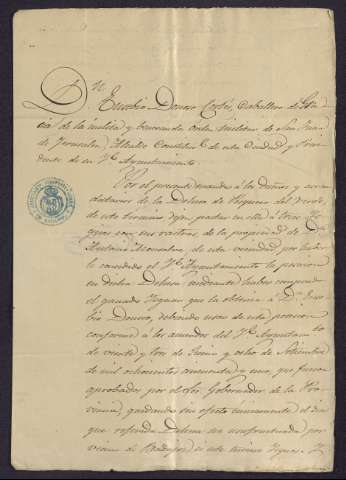 Dn. Eusebio Donoso Cortés, Caballero de
de la ínclita y veneranda orden militar de San Juan
de Jerusalen, Alcalde Constituc.l de esta Ciudad y Presi-
dente de su Y.e Ayuntamiento.
Por el presente mando á los dueños y arren-
datarios de la Dehesa de
de este termino dejen pastar en ella á
con sus rastras de la propiedad de Dn.
Antonio de esta vecindad, por haber-
le concedido el Y.e Ayuntamiento la posesion
en dicha Dehesa mediante haber comprado
el ganado Yeguar que la obtenia á Dn. Euse-
bio Donoso, debiendo usar de esta posesion
conforme á los acuerdos del Y.e Ayuntam.to
de veinte y tres de Junio y ocho de Setiembre
de mil ochocientos cincuenta y uno que fueron
aprobados por el Sor. Gobernador de la Pro-
vincia, quedando sin efecto unicamente el dia
que referida Dehesa sea usufructuada por
vecino de Badajoz ó este mismo